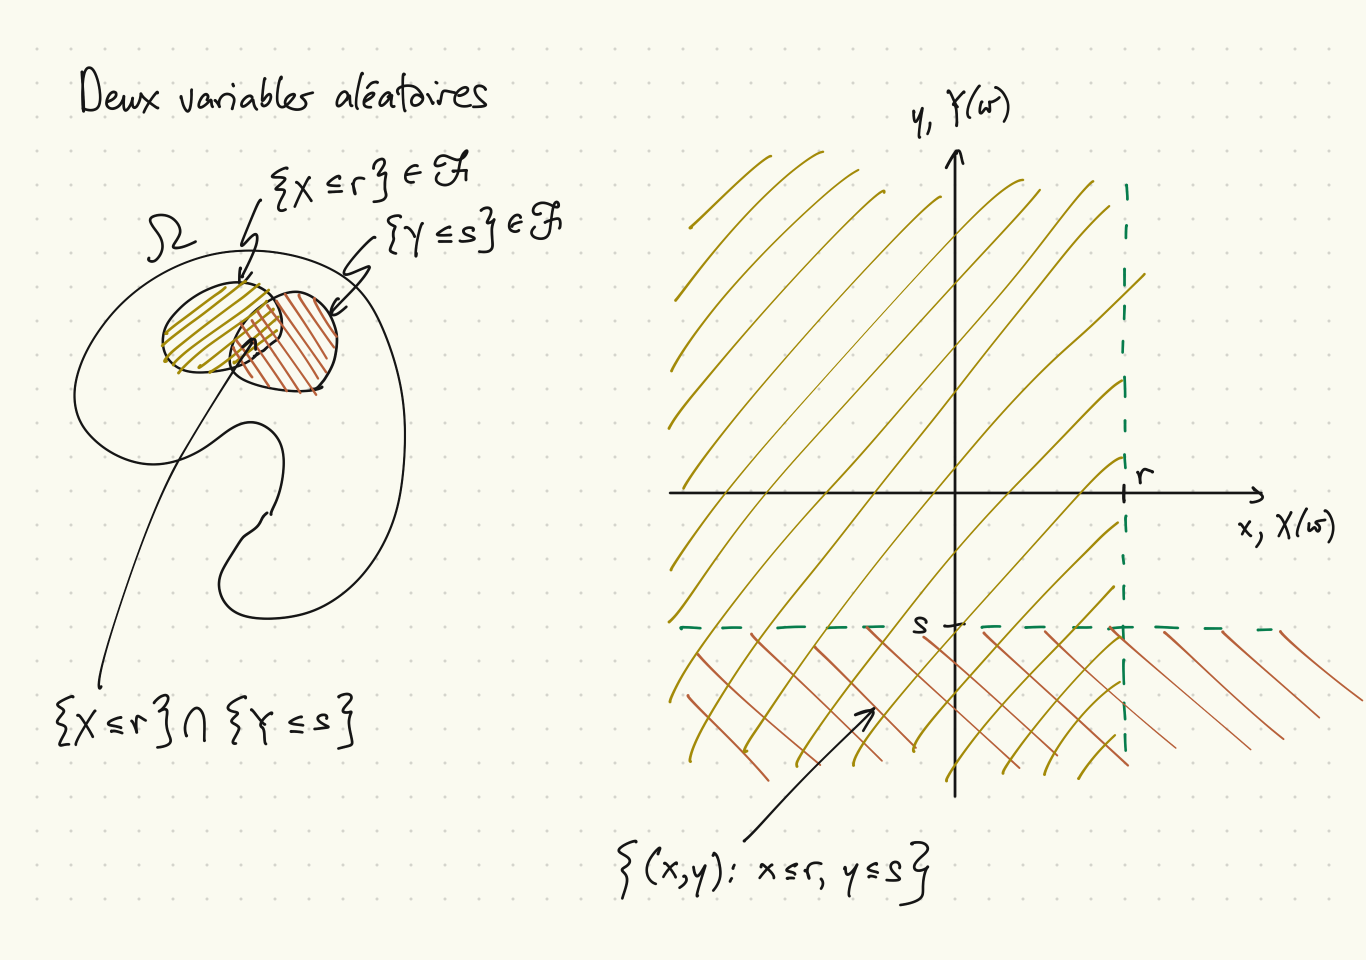 Deux variables aléatoires
{X ≤ r} ∈ ℱ
{Y ≤ s} ∈ ℱ
Ω
{X ≤ r} ∩ {Y ≤ s}
y, Y(ω)
r
x, X(ω)
s
{(x,y): x ≤ r, y ≤ s}